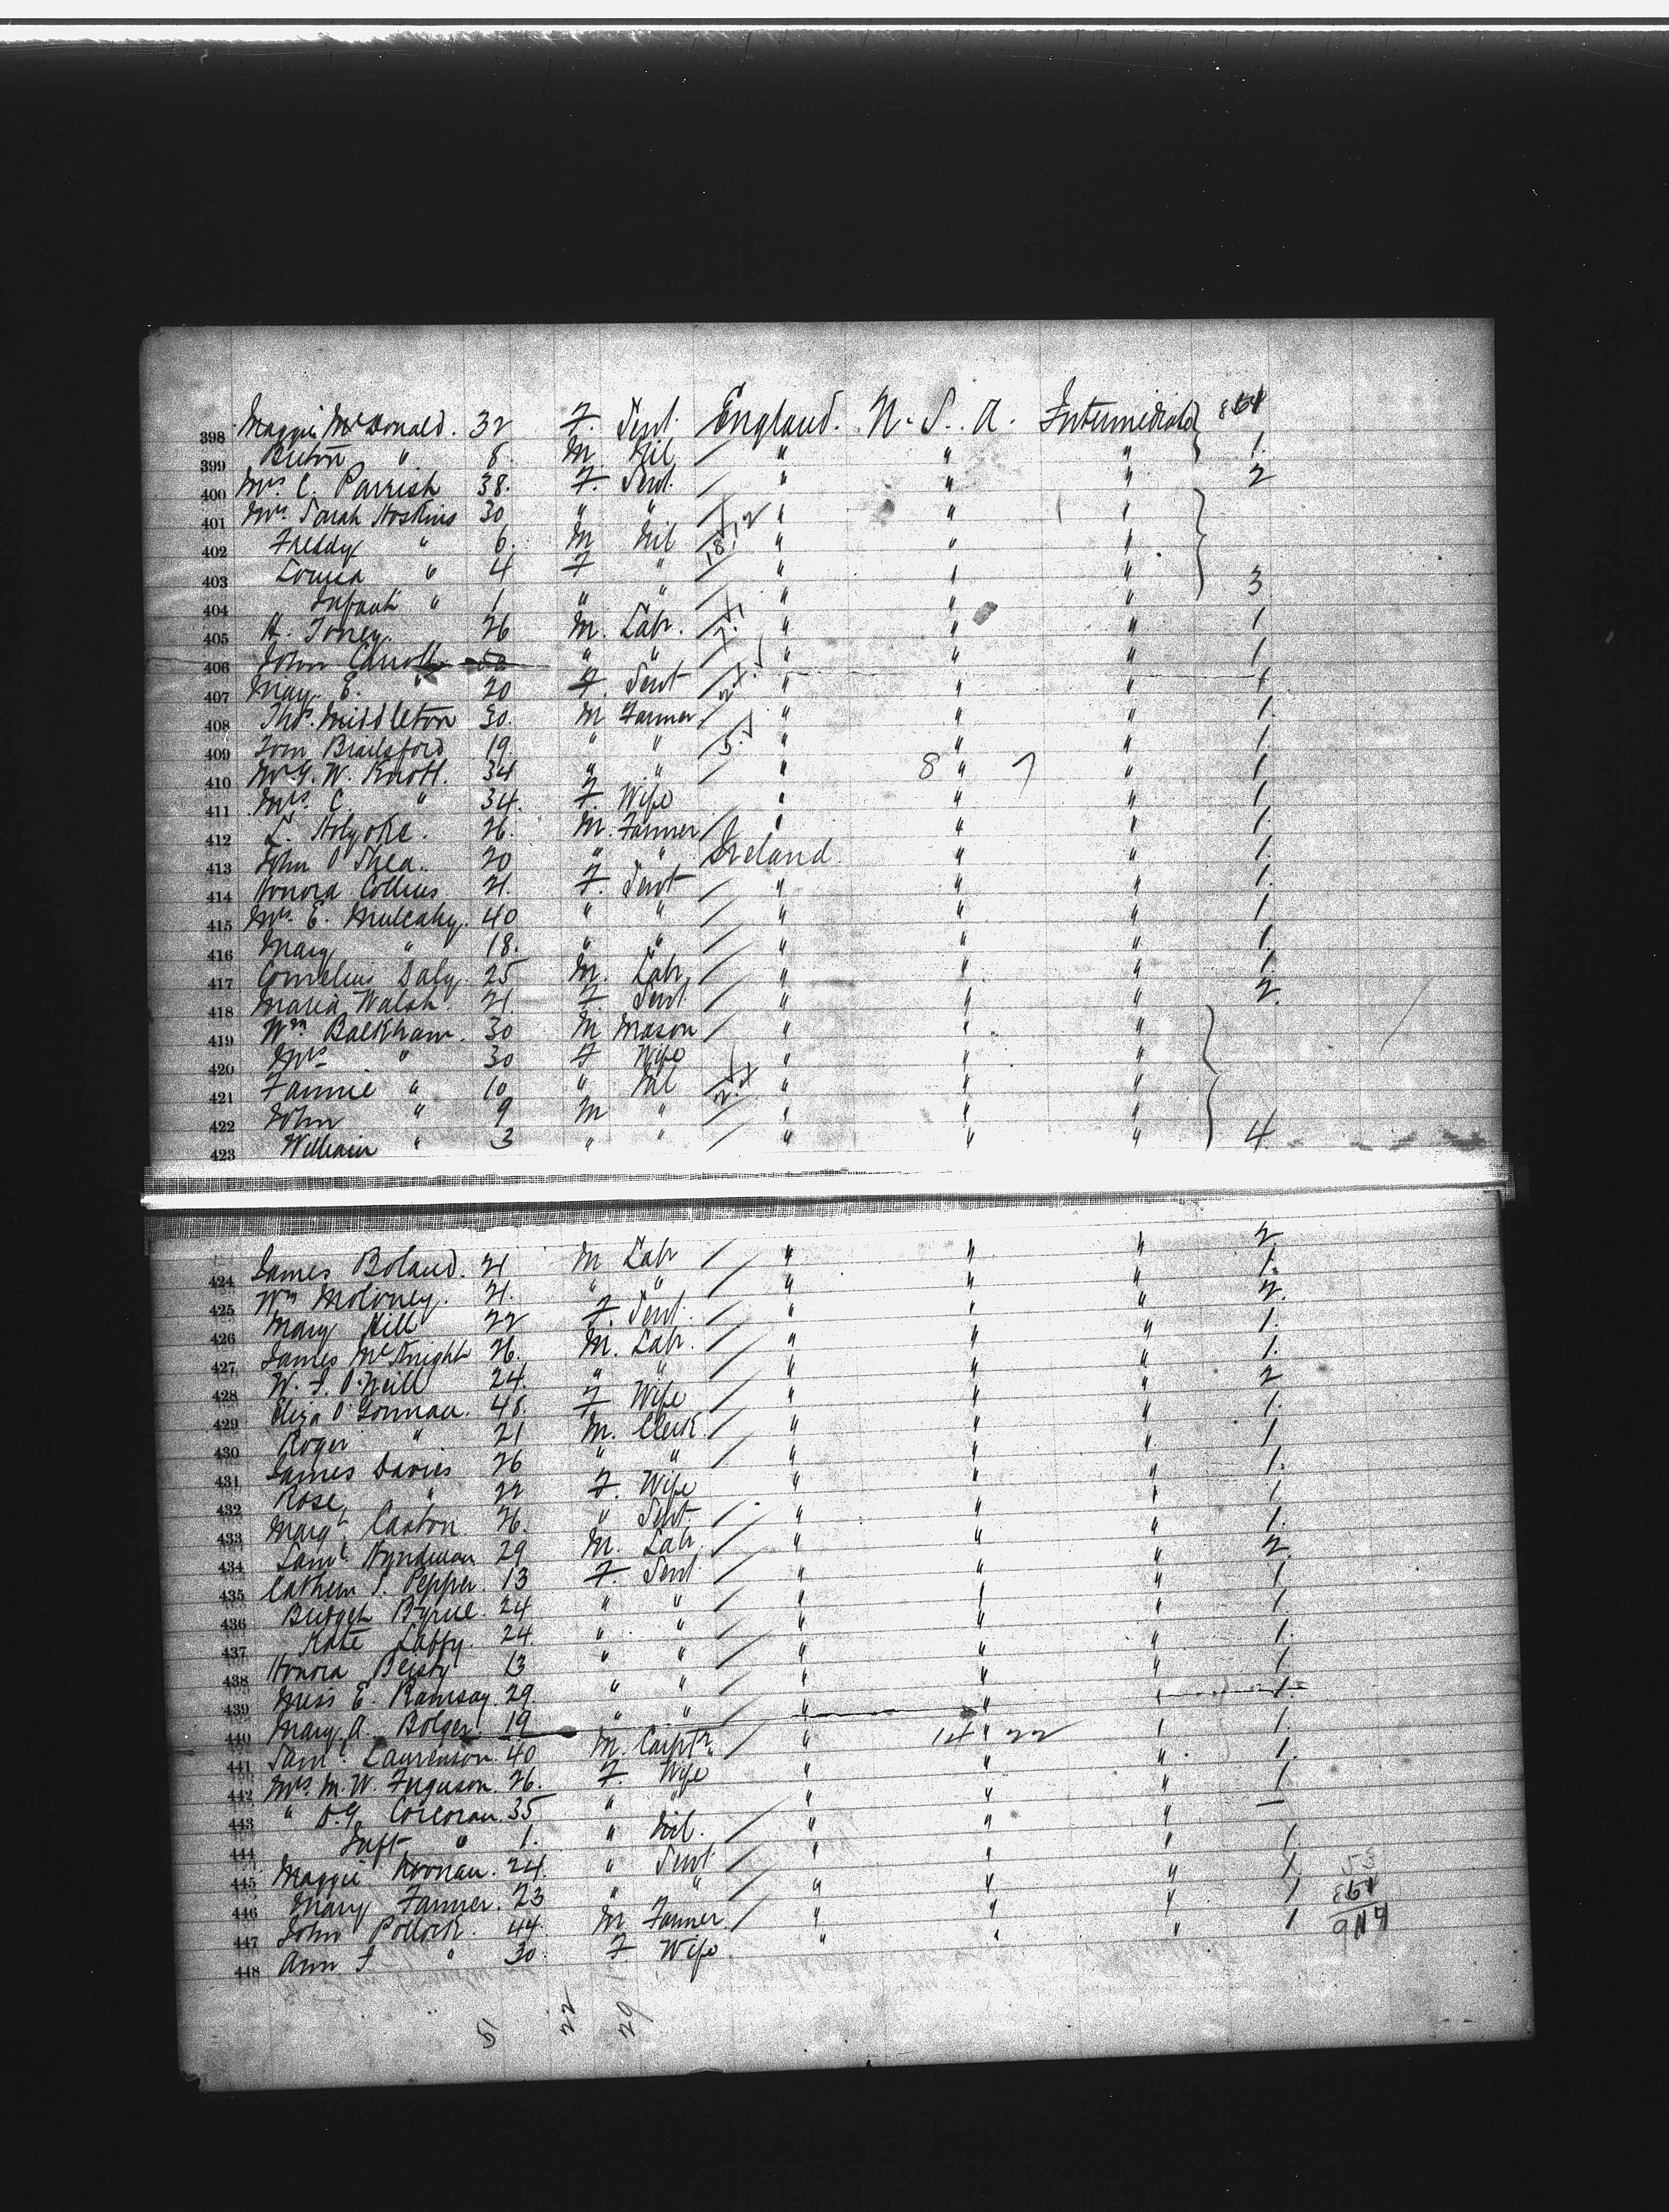 England. U. S. A. Intermediate 861
398 Maggie McDonald. 32 F. Servt.
399 " 8. M. Nil / " " " 1.
400 Mrs C. Parrish 38. F. Servt. / " " " 2
401 Mrs Sarah Hoskins 30 " " / " " "
402 Freddy " 6. M Nil / " " "
403 Louisa " 4 F " / " " " 3
404 Infant " 1 " " / " " "
405 H. Toney. 26 M. Labr. / " " " 1
406 John Carroll " " " " " 1
407 May. E. " 20 F. Servt / " " " 1
408 Thos. Middleton 30. M Farmer / " " " 1.
409 Tom Brailsford 19 " " / " " " 1
410 Mr G. W. Knott. 34 " " / " 8 " 7 " 1
411 Mrs C. " 34. F. Wife " " " 1
412 L. Holyoke. 26. M. Farmer / " " " 1.
413 John O'Shea. 20 " " Ireland " " 1.
414 Honora Collins 21. F. Servt / " " " 1.
415 Mrs E. Mulcahy. 40 " " / " " " 1
416 Mary " 18. " " / " " " 1.
417 Cornelius Daly. 25 M. Labr / " " " 1
418 Maria Walsh. 21. F. Servt / " " " 2.
419 Wm Balkham. 30 M Mason / " " "
420 Mrs " 30 F Wife " " "
421 Fannie " 10 " Nil / " " "
422 John " 9 M " / " " "
423 William " 3 " " / " " " 4
424 James Boland. 21 M Labr / " " " 2
425 Wm Moloney. 21. " " / " " " 1.
426 Mary Hill 22 F. Servt. / " " " 2.
427 James McKnight 26. M. Labr. / " " " 1.
428 W. J. O'Neill 24. " " / " " " 1.
429 Eliza O'Gorman. 48. F Wife / " " " 2
430 Roger " 21 M. Clerk / " " " 1.
431 James Davies 26 " " / " " " 1
432 Rose " 22 F. Wife " " " 1.
433 Margt Caxton. 26. " Servt. / " " " 1
434 Saml. Hyndman 29 M. Labr. / " " " 1.
435 Pepper. 13 F. Servt / " " " 2
436 Bridget Byrne. 24 " " / " " " 1
437 Kate Laffy. 24. " " / " " " 1.
438 Honora 13 " " / " " " 1.
439 Miss E. Ramsay. 29. " " / " " " 1
440 Mary A. Bolger. 19 " " " " 1.
441 Saml. Laurenson. 40 M. Carptr. / " 14 " 22 " 1.
442 Mrs M. W. Ferguson. 26. F. Wife " " " 1.
443 " D. G. Corcoran. 35 " " " " " 1
444 Inft " 1. " Nil. / " " " —
445 Maggie Noonan. 24. " Servt / " " " 1.
446 Mary Farmer. 23 " " / " " " 1
447 John Pollock. 44. M. Farmer / " " " 1
448 Ann J " 30. F Wife. " " " 1
53
861
914
5 22 29